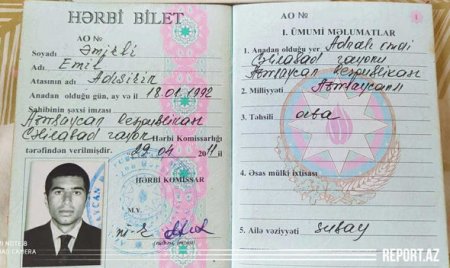 HƏRBİ BİLET
AO №
Soyadı Əmirli
Adı Emil
Atasının adı
Anadan olduğu gün, ay və il 18.01.1992
Sahibinin şəxsi imzası
Azərbaycan Respublikası
Cəlilabad rayon Hərbi Komissarlığı
tərəfindən verilmişdir. 29 04 2011 il
HƏRBİ KOMİSSAR
M.Y.
AO №
1
I. ÜMUMİ MƏLUMATLAR
1. Anadan olduğu yer
Cəlilabad rayonu
Azərbaycan Respublikası
2. Milliyyəti Azərbaycanlı
3. Təhsili orta
4. Əsas mülki ixtisası
5. Ailə vəziyyəti subay
REPORT.AZ